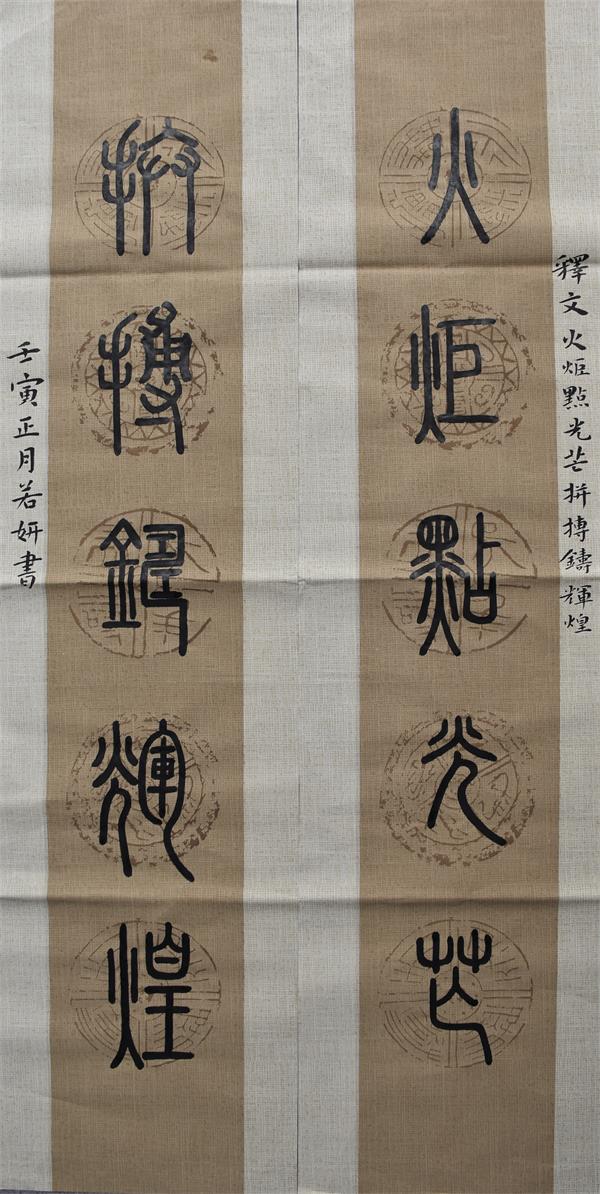 釋文火炬點光芒拼搏鑄輝煌
火炬點光芒
拼搏鑄輝煌
壬寅正月若妍書